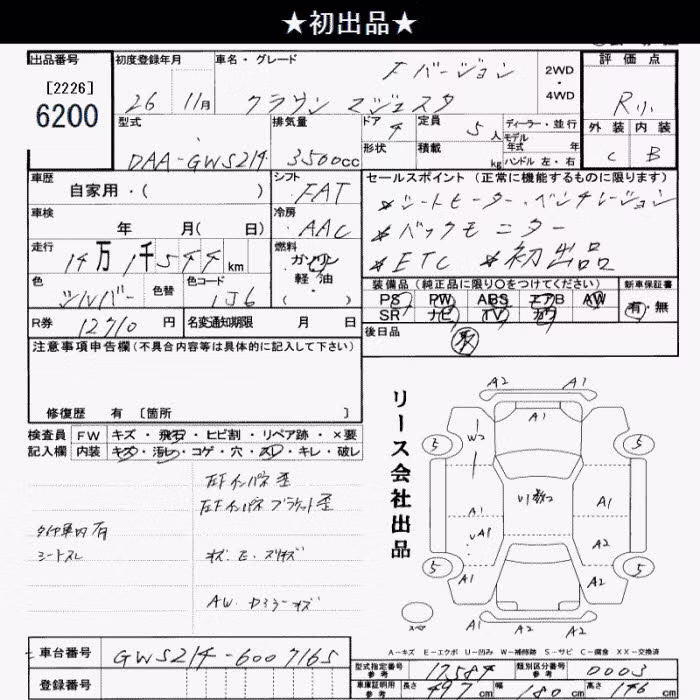 ★初出品★
出品番号
[2226]
6200
初度登録年月
26 11月
車名・グレード
Fバージョン
クラウン マジェスタ
2WD
・
4WD
評価点
R小
外装 内装
C B
型式
DAA-GWS214
排気量
3500cc
ドア 4
形状
定員 5人
積載 kg
ディーラー・並行
モデル
年式 年
ハンドル 左・右
車歴
自家用・( )
シフト
FAT
車検
年 月( 日)
冷房
AAC
走行
14万1千544km
燃料
ガソリン
軽油
色
シルバー
色替
色コード
1J6
R券 12710円
名変通知期限 月 日
セールスポイント (正常に機能するものに限ります)
*シートヒーター・ベンチレーション
*バックモニター
*ETC *初出品
装備品(純正品に限り○をつけてください)
PS PW ABS エアB AW
SR ナビ TV カワ
新車保証書
有・無
後日品
取
注意事項申告欄(不具合内容等は具体的に記入して下さい)
修復歴 有 [箇所 ]
検査員 FW キズ・飛石・ヒビ割・リペア跡・×要
記入欄 内装 キズ・汚れ・コゲ・穴・スレ・キレ・破レ
左Fインパネ歪
左Fインパネブラケット歪
タイヤ車内有
シートスレ
キズ・E・スリキズ
AW・ドミラーキズ
リース会社出品
A2 A1
A1
5 W2 5
U1数2
A1 A1
UA1 A2
5 A1 A2 5
A1 A2
スペア
A-キズ E-エクボ U-凹み W-補修跡 S-サビ C-腐食 XX-交換済
車台番号 GWS214-6007165
登録番号
型式指定番号 参考 17584
類別区分番号 参考 0003
車庫証明用 参考 長さ 497cm 幅 180cm 高さ 146cm